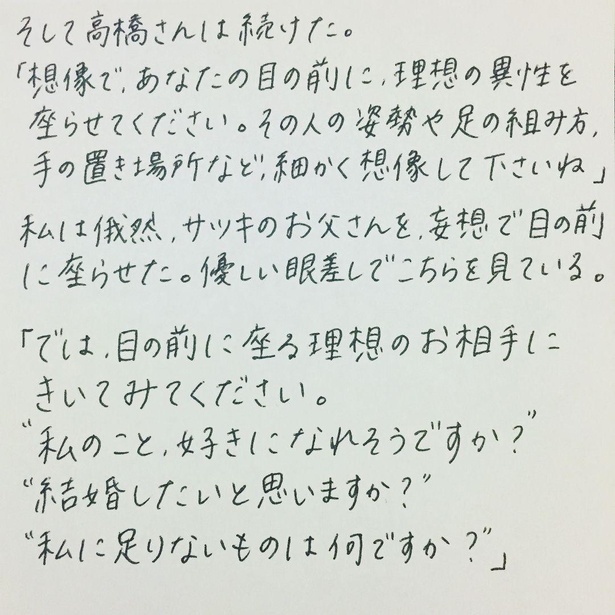 そして高橋さんは続けた。
「想像で、あなたの目の前に、理想の異性を
座らせてください。その人の姿勢や足の組み方、
手の置き場所など、細かく想像して下さいね」
私は俄然、サツキのお父さんを、妄想で目の前
に座らせた。優しい眼差しでこちらを見ている。
「では、目の前に座る理想のお相手に
きいてみてください。
“私のこと、好きになれそうですか？”
“結婚したいと思いますか？”
“私に足りないものは何ですか？”」